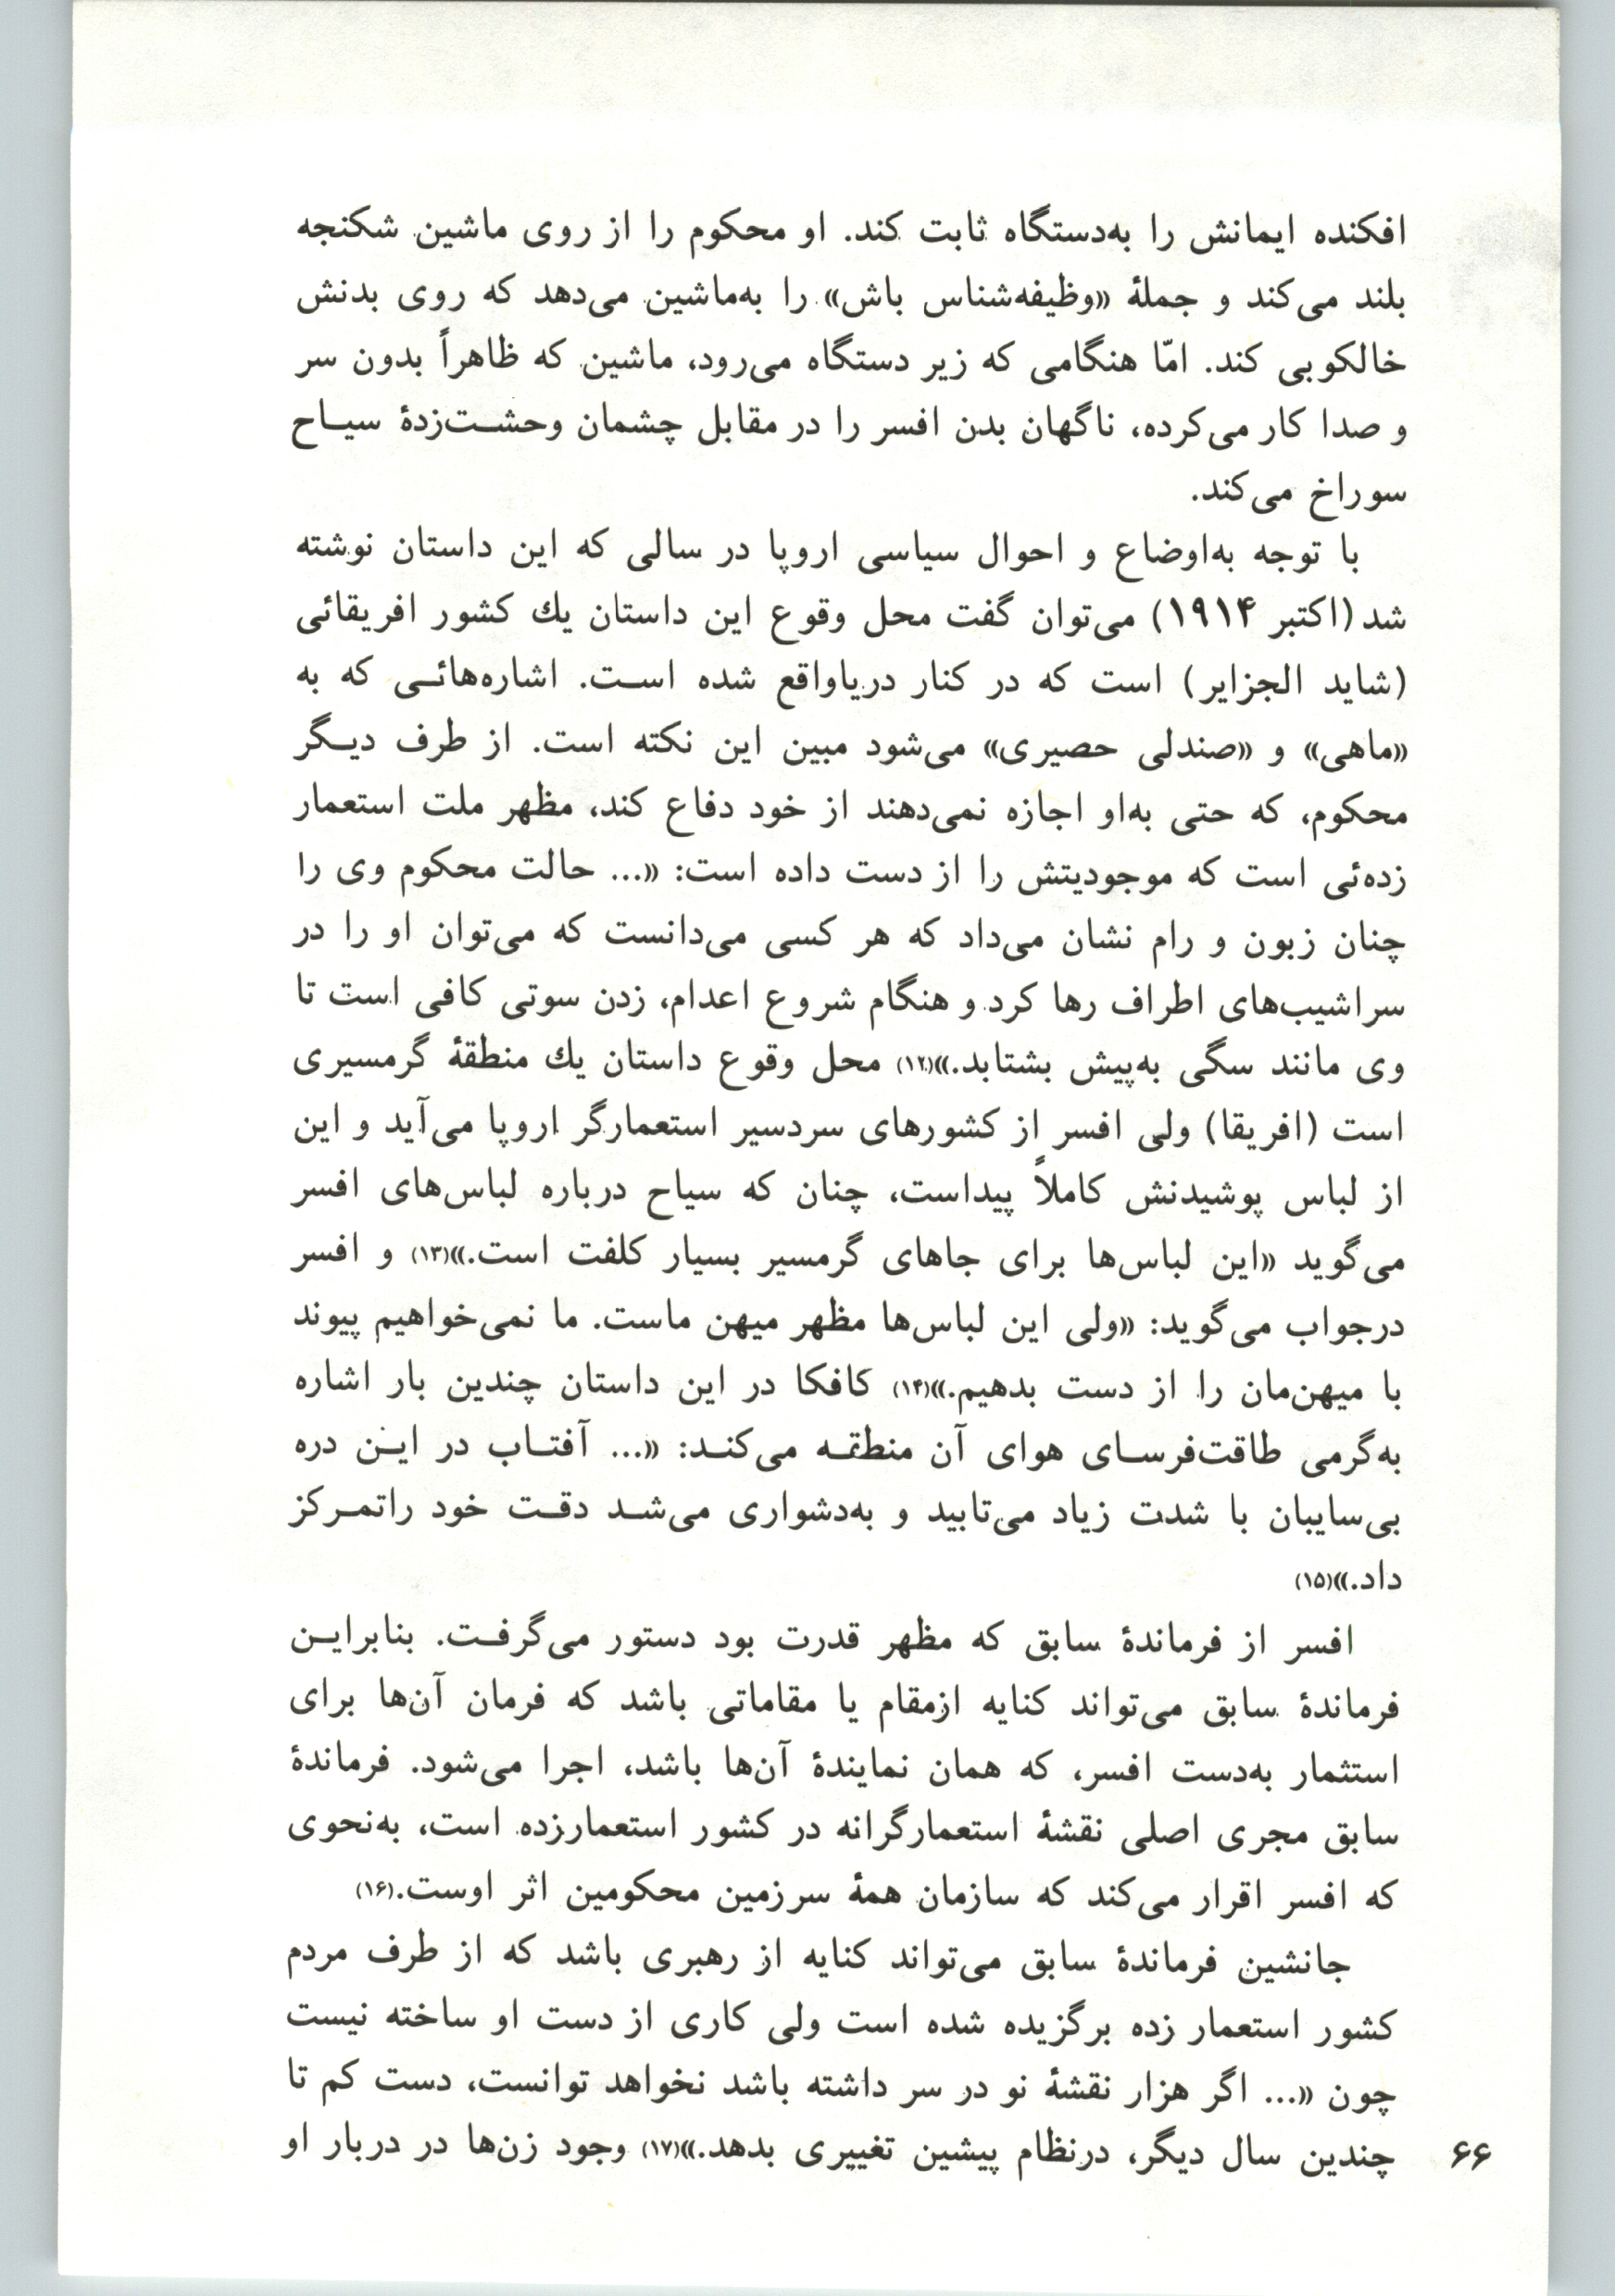 افکنده ایمانش را به‌دستگاه ثابت کند. او محکوم را از روی ماشین شکنجه
بلند می‌کند و جملهٔ «وظیفه‌شناس باش» را به‌ماشین می‌دهد که روی بدنش
خالکوبی کند. امّا هنگامی که زیر دستگاه می‌رود، ماشین که ظاهراً بدون سر
و صدا کار می‌کرده، ناگهان بدن افسر را در مقابل چشمان وحشت‌زدهٔ سیاح
سوراخ می‌کند.
با توجه به‌اوضاع و احوال سیاسی اروپا در سالی که این داستان نوشته
شد (اکتبر ۱۹۱۴) می‌توان گفت محل وقوع این داستان یك کشور افریقائی
(شاید الجزایر) است که در کنار دریاواقع شده است. اشاره‌هائی که به
«ماهی» و «صندلی حصیری» می‌شود مبین این نکته است. از طرف دیگر
محکوم، که حتی به‌او اجازه نمی‌دهند از خود دفاع کند، مظهر ملت استعمار
زده‌ئی است که موجودیتش را از دست داده است: «... حالت محکوم وی را
چنان زبون و رام نشان می‌داد که هر کسی می‌دانست که می‌توان او را در
سراشیب‌های اطراف رها کرد و هنگام شروع اعدام، زدن سوتی کافی است تا
وی مانند سگی به‌پیش بشتابد.»(۱۲) محل وقوع داستان یك منطقهٔ گرمسیری
است (افریقا) ولی افسر از کشورهای سردسیر استعمارگر اروپا می‌آید و این
از لباس پوشیدنش کاملاً پیداست، چنان که سیاح درباره لباس‌های افسر
می‌گوید «این لباس‌ها برای جاهای گرمسیر بسیار کلفت است.»(۱۳) و افسر
درجواب می‌گوید: «ولی این لباس‌ها مظهر میهن ماست. ما نمی‌خواهیم پیوند
با میهن‌مان را از دست بدهیم.»(۱۴) کافکا در این داستان چندین بار اشاره
به‌گرمی طاقت‌فرسای هوای آن منطقه می‌کند: «... آفتاب در این دره
بی‌سایبان با شدت زیاد می‌تابید و به‌دشواری می‌شد دقت خود راتمرکز
داد.»(۱۵)
افسر از فرماندهٔ سابق که مظهر قدرت بود دستور می‌گرفت. بنابراین
فرماندهٔ سابق می‌تواند کنایه ازمقام یا مقاماتی باشد که فرمان آن‌ها برای
استثمار به‌دست افسر، که همان نمایندهٔ آن‌ها باشد، اجرا می‌شود. فرماندهٔ
سابق مجری اصلی نقشهٔ استعمارگرانه در کشور استعمارزده است، به‌نحوی
که افسر اقرار می‌کند که سازمان همهٔ سرزمین محکومین اثر اوست.(۱۶)
جانشین فرماندهٔ سابق می‌تواند کنایه از رهبری باشد که از طرف مردم
کشور استعمار زده برگزیده شده است ولی کاری از دست او ساخته نیست
چون «... اگر هزار نقشهٔ نو در سر داشته باشد نخواهد توانست، دست کم تا
چندین سال دیگر، درنظام پیشین تغییری بدهد.»(۱۷) وجود زن‌ها در دربار او
۶۶